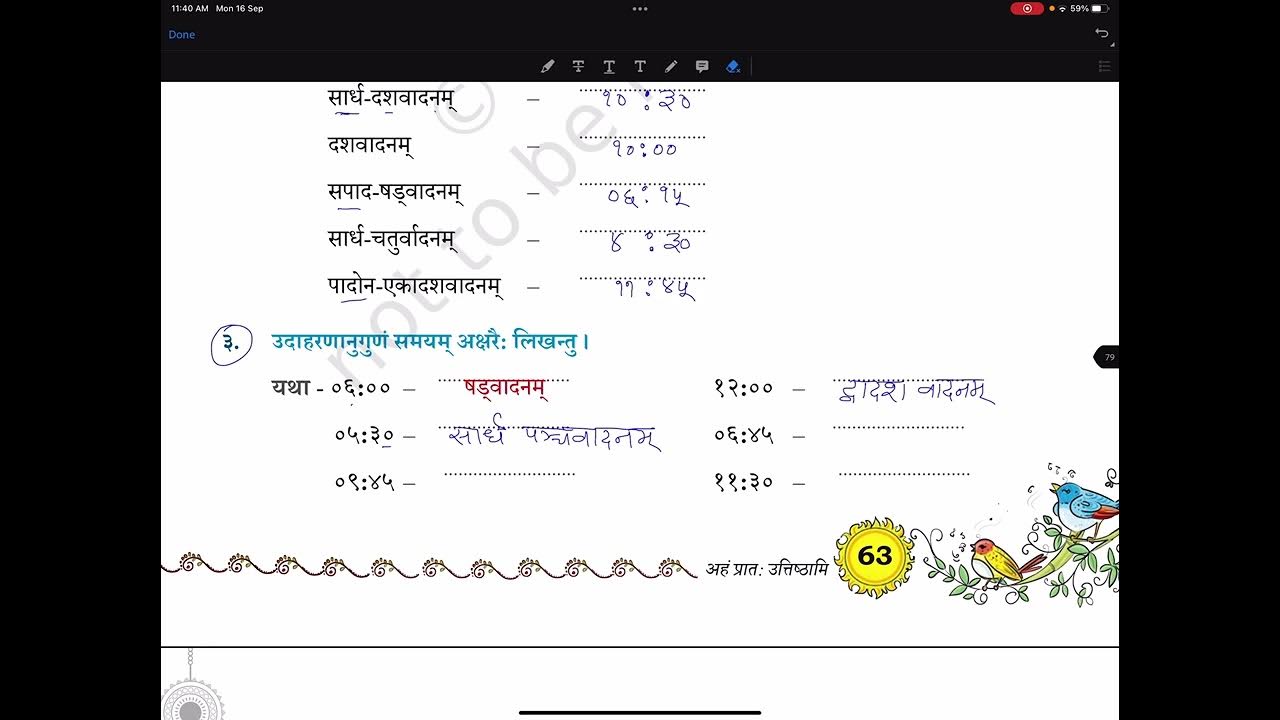 11:40 AM Mon 16 Sep
59%
Done
सार्ध-दशवादनम् – १० : ३०
दशवादनम् – १०:००
सपाद-षड्वादनम् – ०६:१५
सार्ध-चतुर्वादनम् – ४ : ३०
पादोन-एकादशवादनम् – ११:४५
३. उदाहरणानुगुणं समयम् अक्षरै: लिखन्तु।
यथा - ०६:०० – षड्वादनम् १२:०० – द्वादश वादनम्
०५:३० – सार्ध पञ्चवादनम् ०६:४५ –
०९:४५ – ११:३० –
अहं प्रात: उत्तिष्ठामि 63
79
© not to be